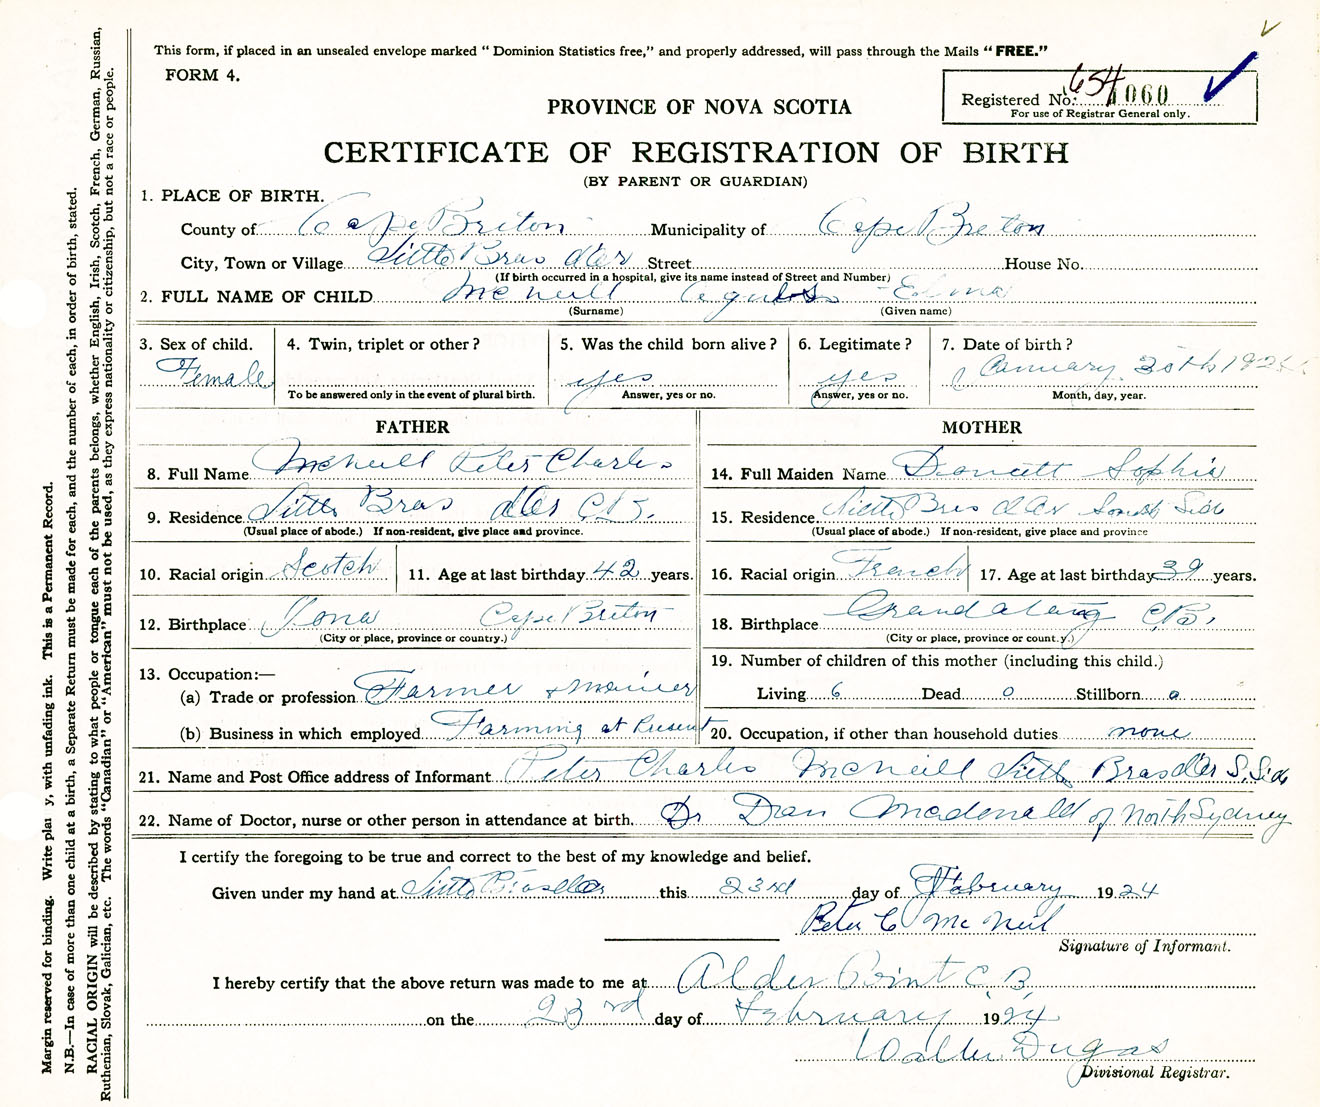 This form, if placed in an unsealed envelope marked "Dominion Statistics free," and properly addressed, will pass through the Mails "FREE."
FORM 4.
654
Registered No. 060
For use of Registrar General only.
PROVINCE OF NOVA SCOTIA
CERTIFICATE OF REGISTRATION OF BIRTH
(BY PARENT OR GUARDIAN)
1. PLACE OF BIRTH.
County of Cape Briton Municipality of Cape Breton
City, Town or Village Little Bras d'Or Street House No.
(If birth occurred in a hospital, give its name instead of Street and Number)
2. FULL NAME OF CHILD McNeill Edna
(Surname) (Given name)
3. Sex of child. 4. Twin, triplet or other? 5. Was the child born alive? 6. Legitimate? 7. Date of birth?
Female yes yes January 30th
To be answered only in the event of plural birth. Answer, yes or no. Answer, yes or no. Month, day, year.
FATHER MOTHER
8. Full Name McNeill Peter Charles 14. Full Maiden Name Doucett Sophie
9. Residence Little Bras d'Or C.B. 15. Residence Little Bras d'Or South Side
(Usual place of abode.) If non-resident, give place and province. (Usual place of abode.) If non-resident, give place and province
10. Racial origin Scotch 11. Age at last birthday 42 years. 16. Racial origin French 17. Age at last birthday 39 years.
12. Birthplace Iona Cape Briton 18. Birthplace Grand C.B.
(City or place, province or country.) (City or place, province or count.y.)
13. Occupation:— 19. Number of children of this mother (including this child.)
(a) Trade or profession Farmer & Living 6 Dead 0 Stillborn 0
(b) Business in which employed Farming at Present 20. Occupation, if other than household duties none
21. Name and Post Office address of Informant Peter Charles McNeill Little Bras d'Or S. Side
22. Name of Doctor, nurse or other person in attendance at birth. Dr Dan Macdonald of North Sydney
I certify the foregoing to be true and correct to the best of my knowledge and belief.
Given under my hand at Little Bras d'Or this 23rd day of February 1924
Peter C McNeil
Signature of Informant.
I hereby certify that the above return was made to me at Alder Point C.B.
on the 23rd day of February 1924
Walter Dugas
Divisional Registrar.
Margin reserved for binding. Write y, with unfading ink. This is a Permanent Record.
N.B.—In case of more than one child at a birth, a Separate Return must be made for each, and the number of each, in order of birth, stated.
RACIAL ORIGIN will be described by stating to what people or tongue each of the parents belongs, whether English, Irish, Scotch, French, German, Russian,
Ruthenian, Slovak, Galician, etc. The words "Canadian" or "American" must not be used, as they express nationality or citizenship, but not a race or people.